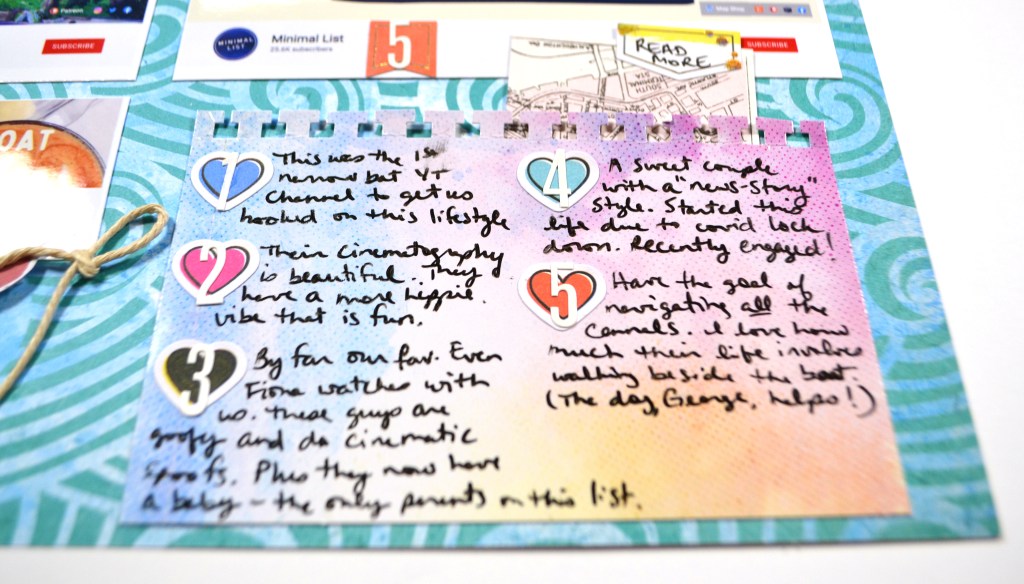 Patreon
SUBSCRIBE
MINIMAL LIST
Minimal List
29.6K subscribers
5
SUBSCRIBE
READ
MORE
SOUTH
TERMINAL
STA
OAT
1
This was the 1st
narrow boat YT
channel to get us
hooked on this lifestyle
2
Their cinematography
is beautiful. They
have a more hippie
vibe that is fun.
3
By far our fav. Even
Fiona watches with
us. These guys are
goofy and do cinematic
spoofs. Plus they now have
a baby - the only parents on this list.
4
A sweet couple
with a "news-story"
style. Started this
life due to covid lock
down. Recently engaged!
5
Have the goal of
navigating all the
cannals. I love how
much their life involves
walking beside the boat
(The dog, George, helps!)